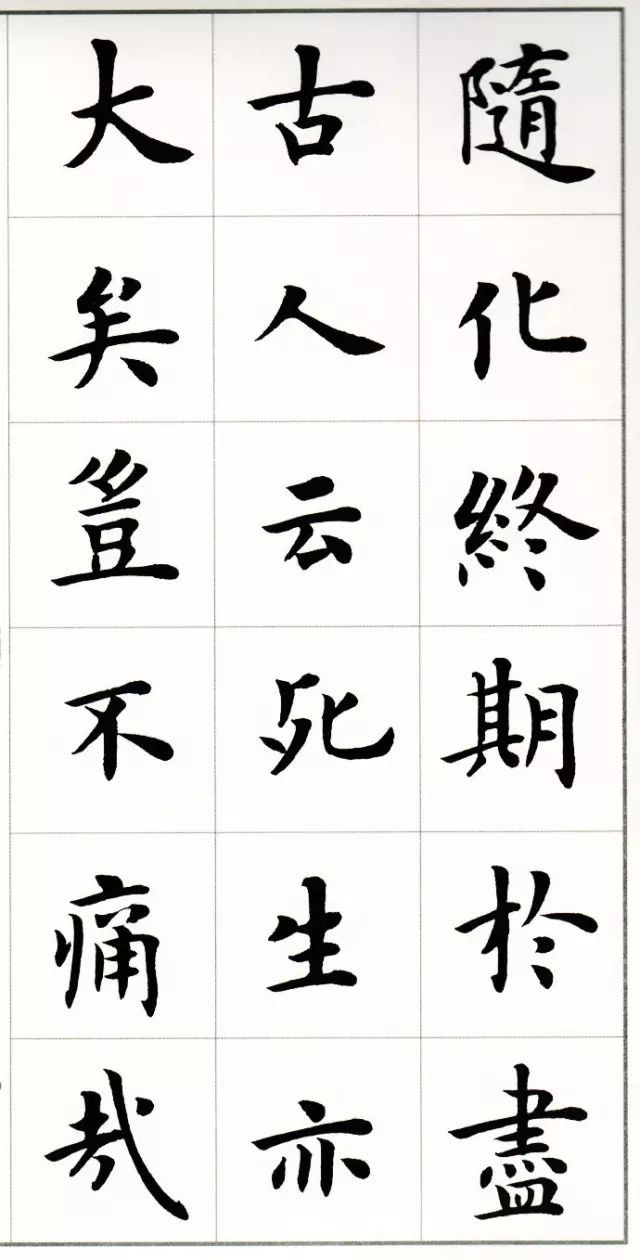 隨化終期於盡
古人云死生亦
大矣豈不痛哉